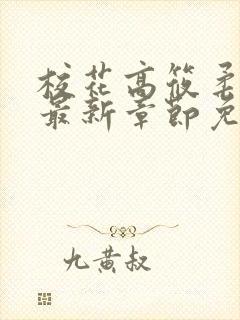 校花高筱柔
最新章节免
九黄叔